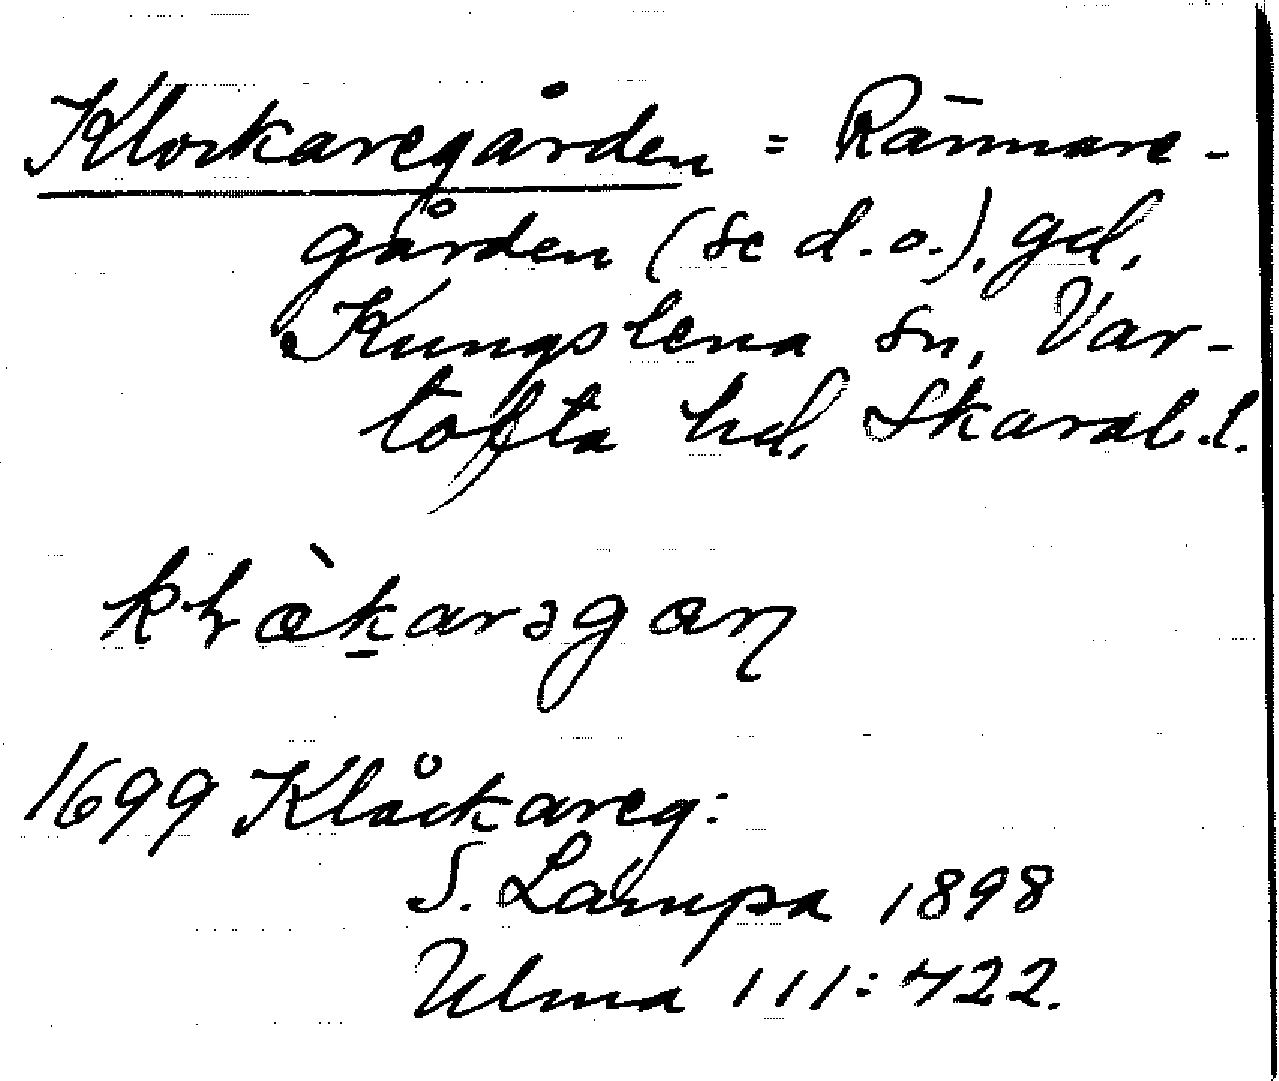 Klockaregården = Rännare-
gården (se d. o.), gd,
Kungslena sn, Var-
tofta hd, Skarab. l.
1699 Klåckareg:
S. Lampa 1898
Ulma 111:422.